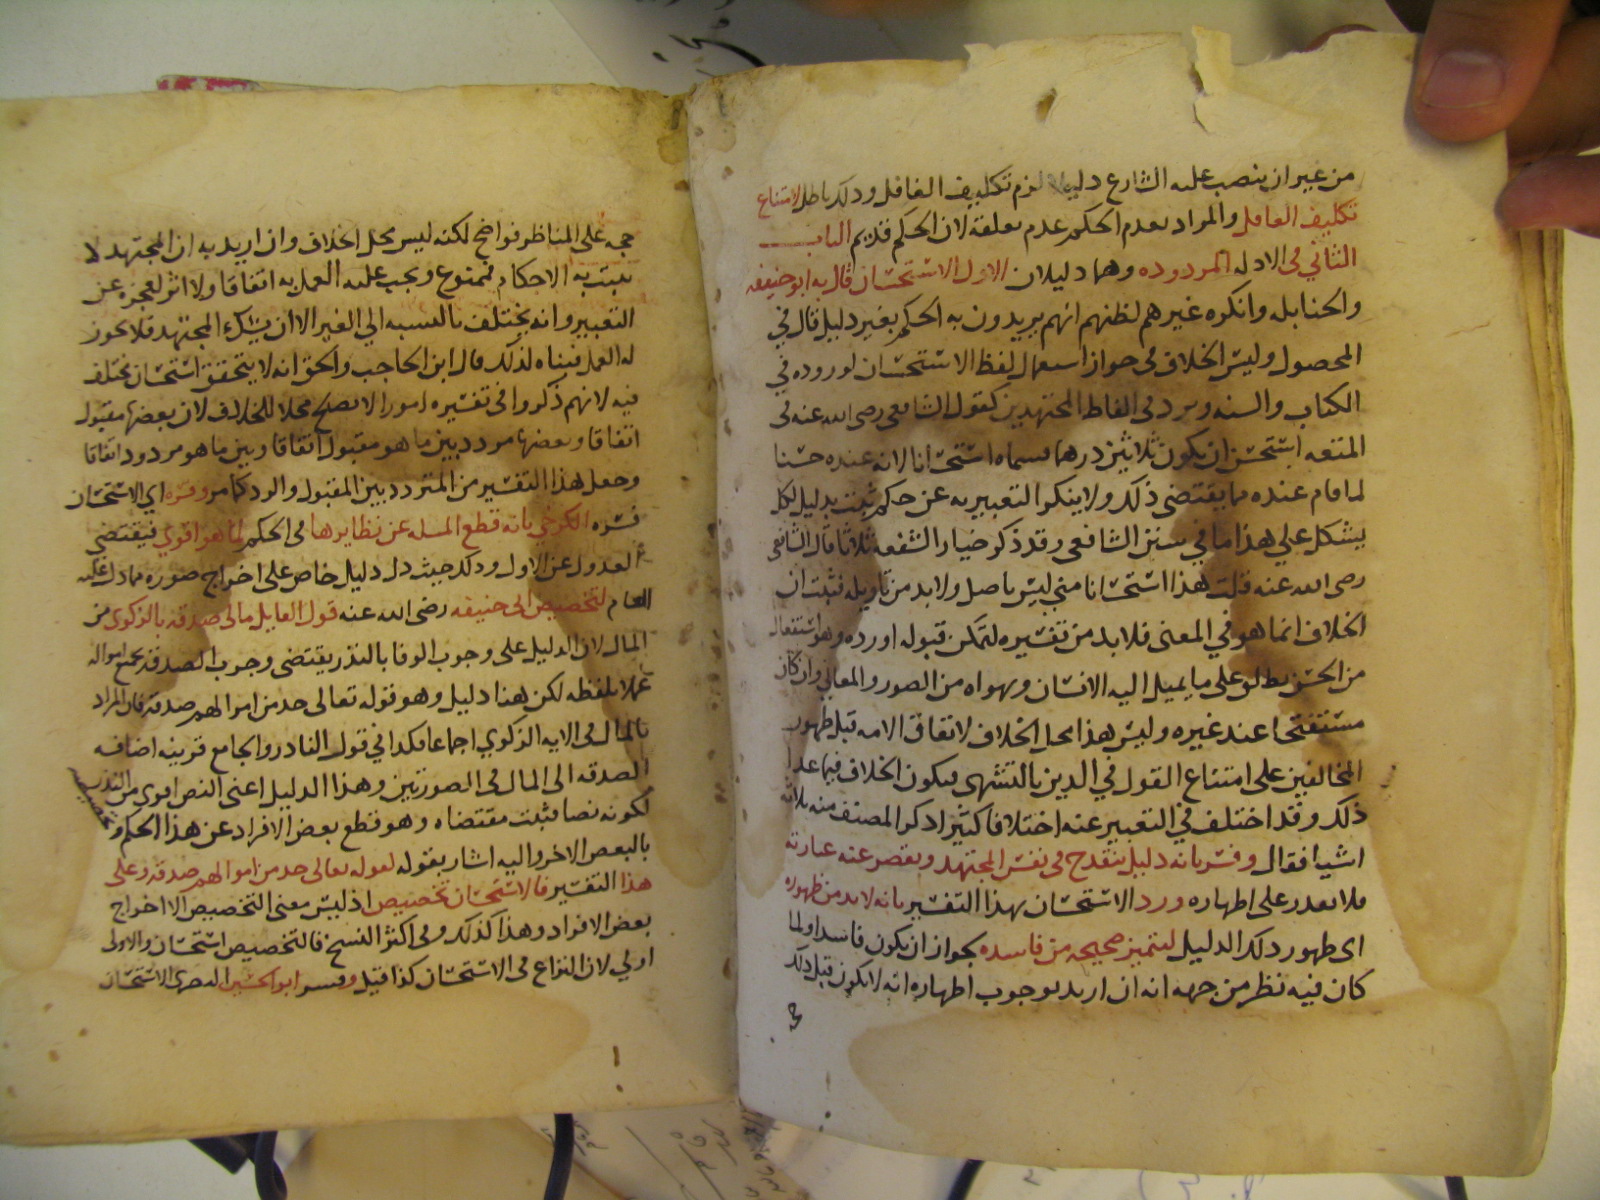 من غير ان ينصب عليه الشارع دليلا لزم تكليف الغافل وذلك باطل لامتناع
تكليف الغافل والمراد بعدم الحكم عدم تعلقه لان الحكم قديم الباب
الثاني في الادله المردوده وهما دليلان الاول الاستحسان قال به ابو حنيفه
والحنابله وانكره غيرهم لظنهم انهم يريدون به الحكم بغير دليل قال في
المحصول وليس الخلاف في جواز استعمال لفظ الاستحسان لوروده في
الكتاب والسنه و في الفاظ المجتهدين كقول الشافعي رضى الله عنه في
المتعه استحسن ان يكون ثلاثين درهما فسماه استحسانا لانه عنده حسنا
لما قام عنده مما يقتضى ذلك ولا ينكر التعبير به عن حكم ثبت بدليل لكل
يشكل على هذا ما في سنن الشافعي وقد ذكر خيار الشفعه ثلاثا قال الشافعي
رضى الله عنه قلت هذا استحسانا منى ليس باصل ولا بد من تاويله فثبت ان
الخلاف انما هو في المعنى فلا بد من تفسيره لتمكن قبوله او رده وهو استفعال
من الحسن يطلق على ما يميل اليه الانسان ويهواه من الصور والمعاني وان كان
مستقبحا عند غيره وليس هذا محل الخلاف لاتفاق الامه قبل ظهور
المخالفين على امتناع القول في الدين بالتشهى فيكون الخلاف فيما عدا
ذلك وقد اختلف في التعبير عنه اختلافا كثيرا ذكر المصنف منه ثلاثه
اشيا فقال وفسر بانه دليل ينقدح في نفس المجتهد ويقصر عنه عبارته
فلا يقدر على اظهاره ورد الاستحسان بهذا التفسير بانه لا بد من ظهوره
اى ظهور ذلك الدليل ليتميز صحيحه من فاسده بجواز ان يكون فاسدا ولما
كان فيه نظر من جهه انه ان اريد بوجوب اظهاره انه لا يكون قبل ذلك
حجه على المناظر فواضح لكنه ليس محل الخلاف وان اريد به ان المجتهد لا
يثبت به الاحكام فممنوع ويجب عليه العمل به اتفاقا ولا اثر لعجزه عن
التعبير وانه يختلف بالنسبه الى الغير الا ان يشك المجتهد فلا يجوز
له العمل فيناه لذلك قال ابن الحاجب والحق انه لا يتحقق استحسان مختلف
فيه لانهم ذكروا في تفسيره امورا لا تصلح محلا للخلاف لان بعضها مقبول
اتفاقا وبعضها مردد بين ما هو مقبول اتفاقا وبين ما هو مردود اتفاقا
وجعل هذا التفسير من المتردد بين المقبول والمردود كما مر وفسره اي الاستحسان
فسره الكرخي بانه قطع المسله عن نظايرها في الحكم لما هو اقوي فيقتضي
العدول عن الاول وذلك حيث دل دليل خاص على اخراج صوره مما دل عليه
العام لتخصيص ابي حنيفه رضى الله عنه قول القايل مالى صدقه بالزكوى من
المال لان الدليل على وجوب الوفا بالنذر يقتضى وجوب الصدقه بجميع امواله
عملا بلفظه لكن هنا دليل وهو قوله تعالى خذ من اموالهم صدقه فان المراد
بالمال في الايه الزكوي اجماعا فكذا في قول الناذر والجامع قرينه اضافه
الصدقه الى المال في الصورتين وهذا الدليل اعنى النص اقوى من النذر
لكونه نصا فثبت مقتضاه وهو قطع بعض الافراد عن هذا الحكم و تخصيصه
بالبعض الاخر واليه اشار بقوله لقوله تعالى خذ من اموالهم صدقه وعلى
هذا التفسير فالاستحسان تخصيص اذ ليس معنى التخصيص الا اخراج
بعض الافراد وهذا كذلك وفي اكثر النسخ فالتخصيص استحسان والاولى
اولى لان النزاع في الاستحسان كذا قيل وفسر ابو الحسين البصرى الاستحسان